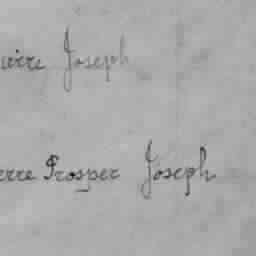 ierre Joseph
erre Prosper Joseph